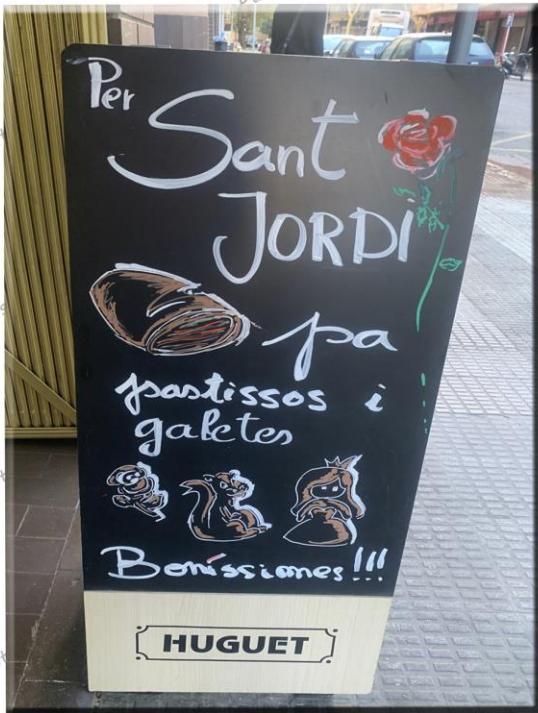 Per
Sant
JORDI
pa
pastissos i
galetes
Boníssimes!!!
HUGUET